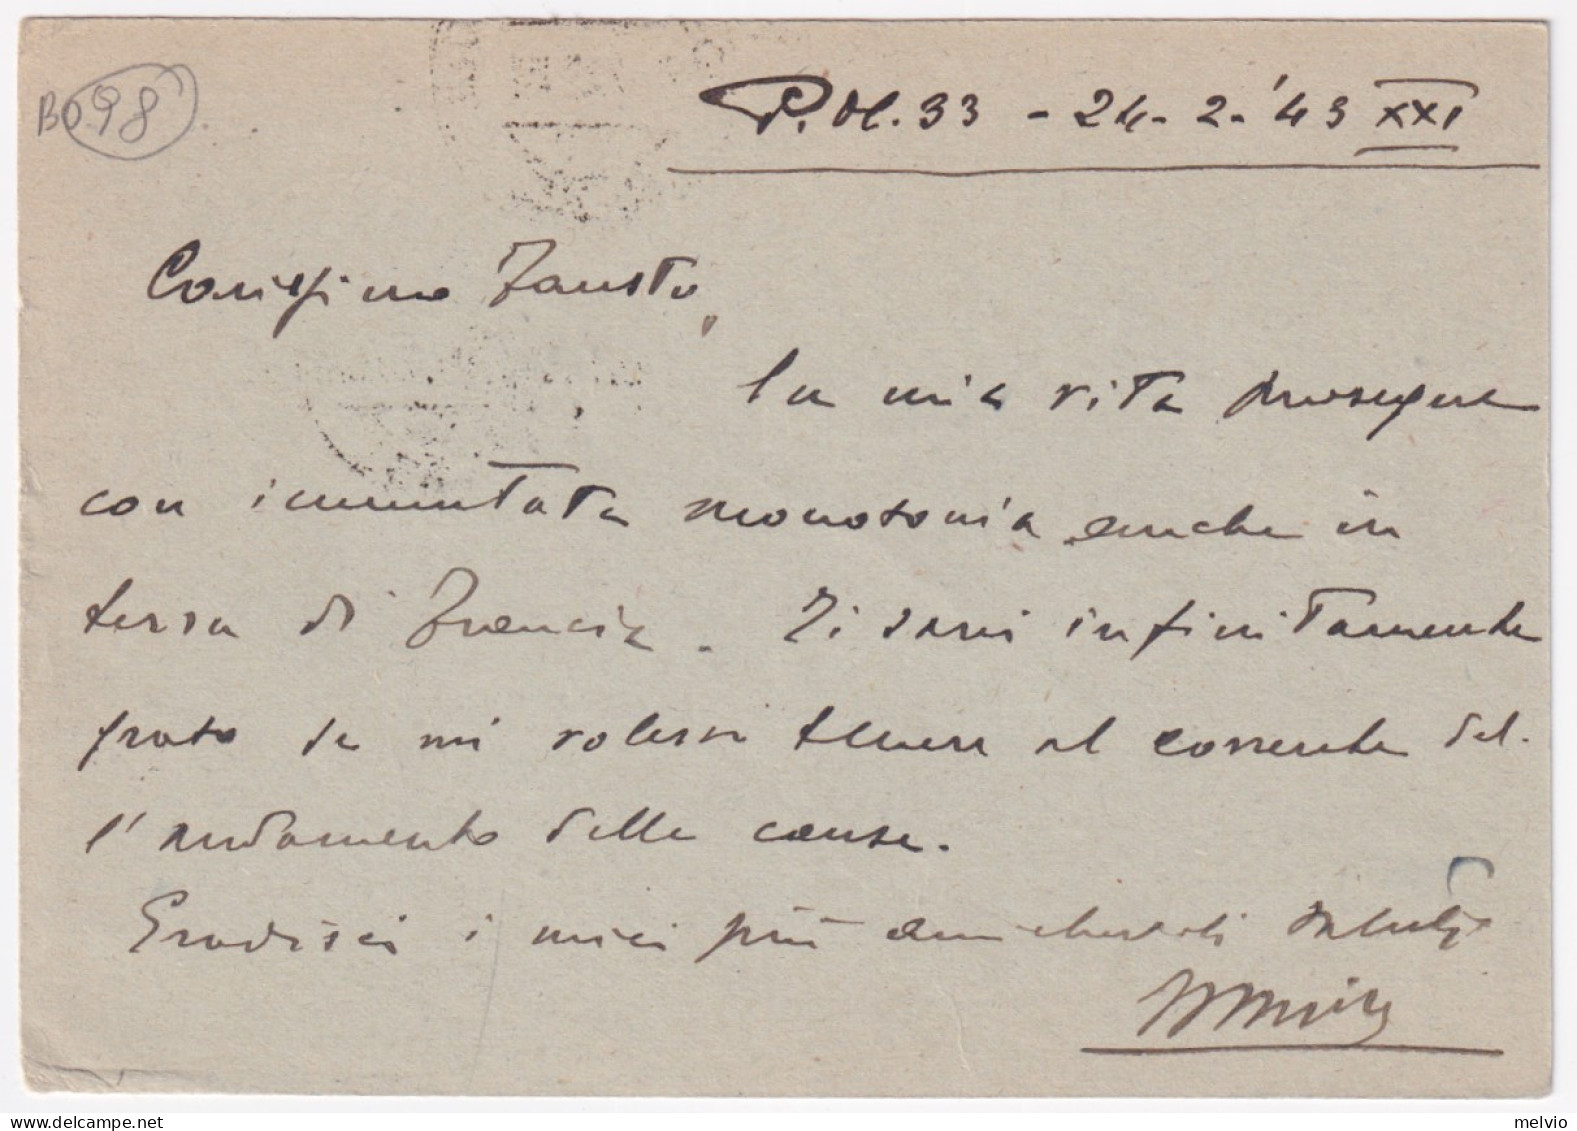 BO98
P.M. 33 - 24-2-'43 XXI
Carissimo Fausto,
la mia vita prosegue
con immutata monotonia anche in
terra di Francia. Ti sarei infinitamente
grato se mi volessi tenere al corrente del-
l'andamento delle cause.
Gradisci i miei più amichevoli saluti
melvio